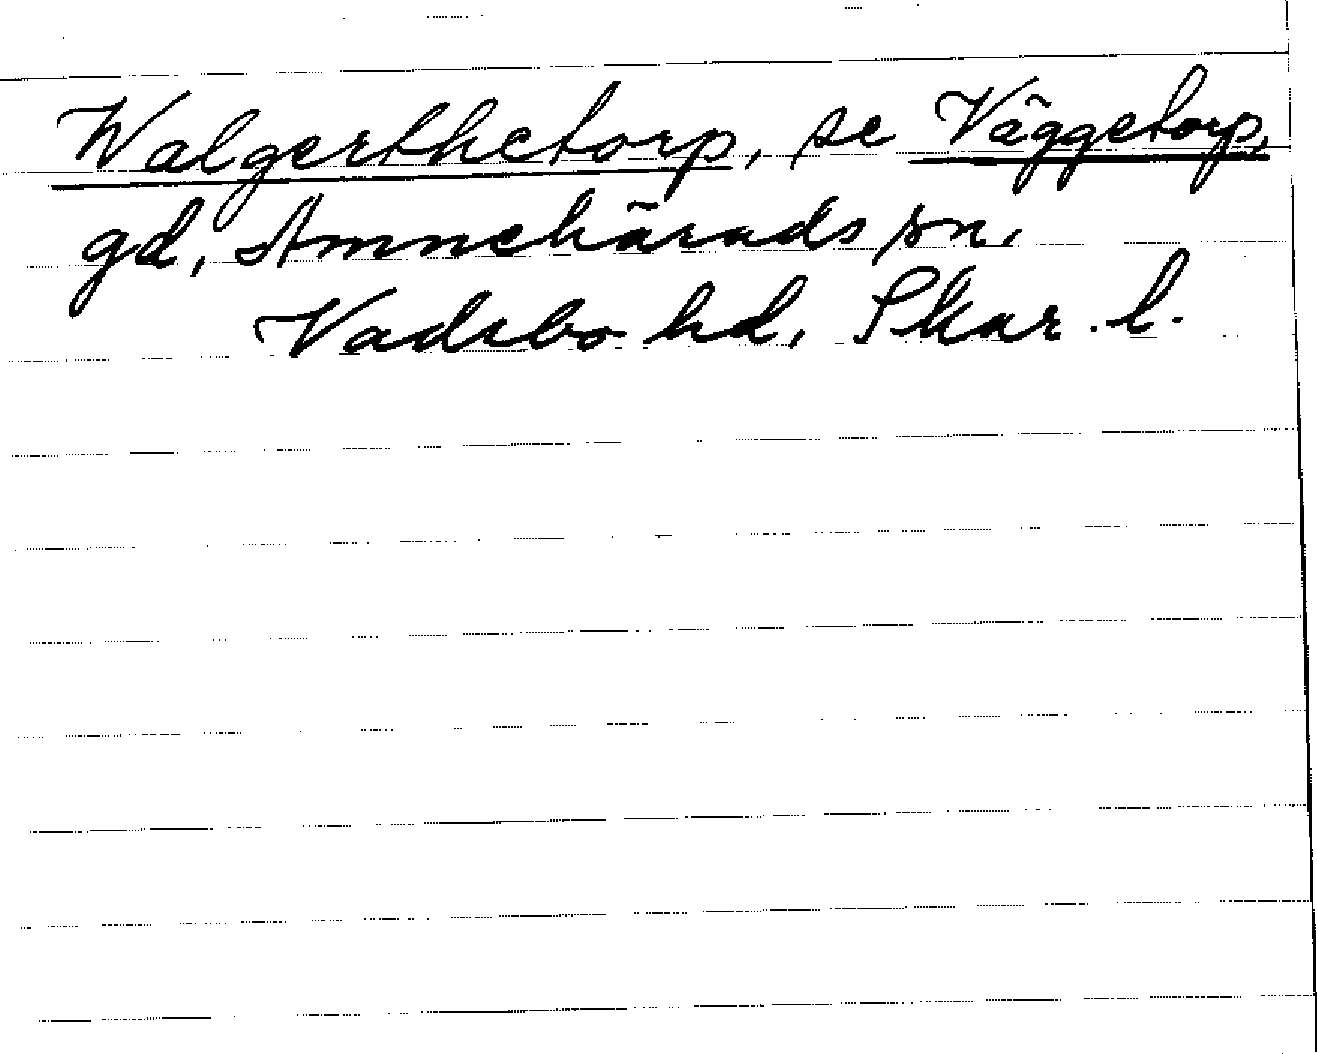 Walgerthetorp, se Väggetorp,
gd, Amnehärads sn,
Vadsbo hd, Skar. l.